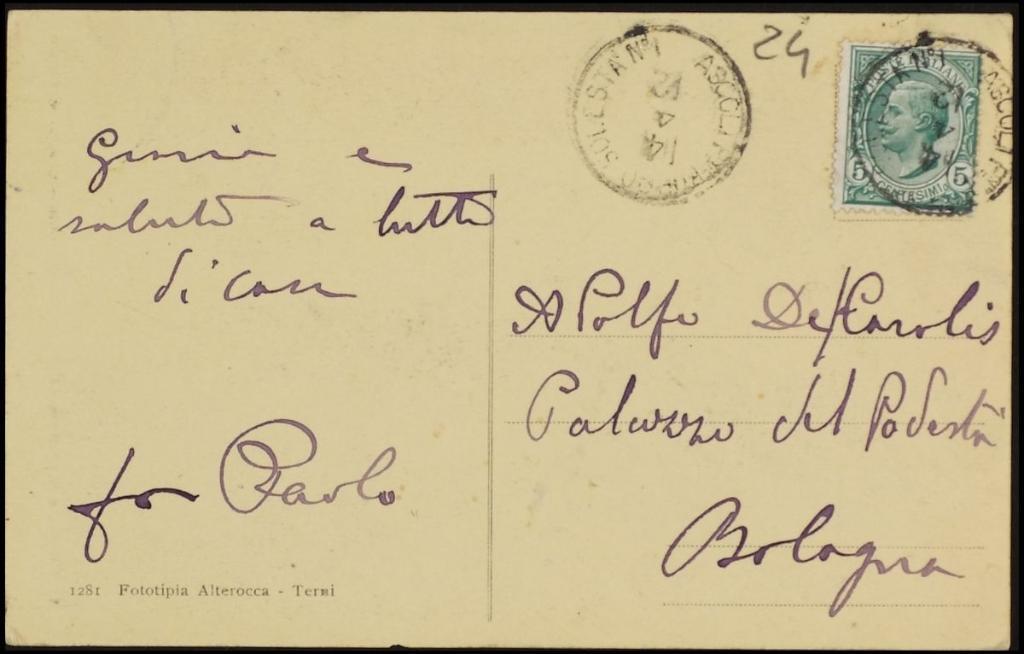 24
SOLESTÀ N°1 ASCOLI PICENO
14
POSTE ITALIANE
5 CENTESIMI 5
ASCOLI
e
saluti a tutti
di casa
Paolo
Adolfo De Carolis
Palazzo del Podestà
Bologna
1281 Fototipia Alterocca - Terni